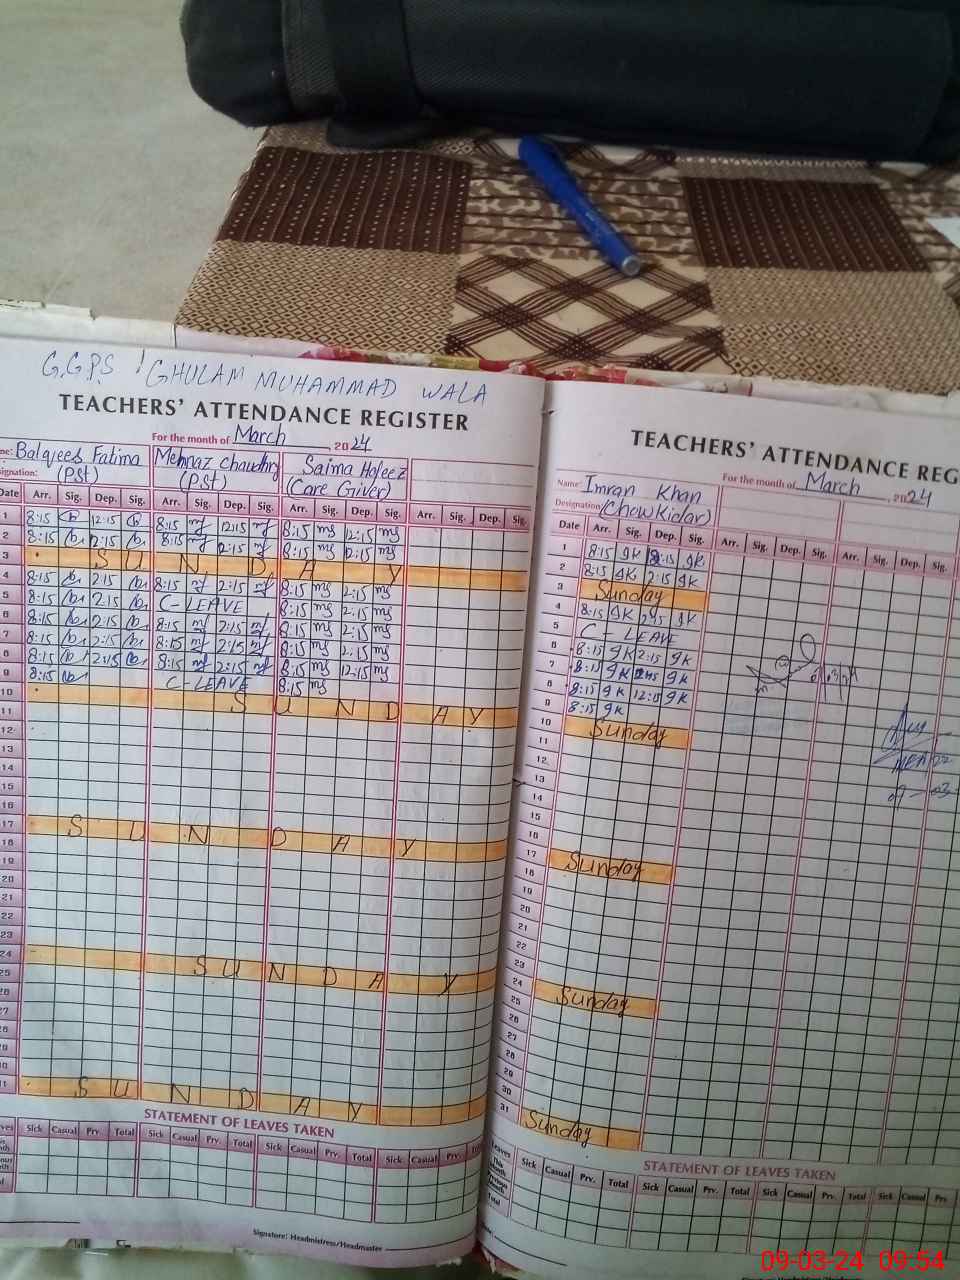 G.G.P.S GHULAM MUHAMMAD WALA
TEACHERS' ATTENDANCE REGISTER
For the month of March, 2024
Balqees Fatima Mehnaz Chaudhry Saima Hafeez
(PST) (PST) (Care Giver)
Date Arr. Sig. Dep. Sig. Arr. Sig. Dep. Sig. Arr. Sig. Dep. Sig. Arr. Sig. Dep. Sig.
1 8:15 12:15 8:15 12:15 8:15 12:15
2 8:15 12:15 8:15 12:15 8:15 12:15
3 SUNDAY
4 8:15 2:15 8:15 2:15 8:15 2:15
5 8:15 2:15 C-LEAVE 8:15 2:15
6 8:15 2:15 8:15 2:15 8:15 2:15
7 8:15 2:15 8:15 2:15 8:15 2:15
8 8:15 12:15 8:15 2:15 8:15 12:15
9 8:15 C-LEAVE 8:15
10 SUNDAY
11
12
13
14
15
16
17 SUNDAY
18
19
20
21
22
23
24 SUNDAY
25
26
27
28
29
30
31 SUNDAY
STATEMENT OF LEAVES TAKEN
Sick Casual Prv. Total Sick Casual Prv. Total Sick Casual Prv. Total Sick Casual Prv.
Signature: Headmistress/Headmaster
TEACHERS' ATTENDANCE REG
Name: Imran Khan For the month of March, 2024
Designation: (Chowkidar)
Date Arr. Sig. Dep. Sig. Arr. Sig. Dep. Sig. Arr. Sig. Dep. Sig.
1 8:15 9K 12:15 9K
2 8:15 9K 2:15 9K
3 Sunday
4 8:15 9K 2:15 9K
5 C-LEAVE
6 8:15 9K 2:15 9K
7 8:15 9K 2:15 9K
8 8:15 9K 12:15 9K
9 8:15 9K
10 Sunday
11
12
13
14
15
16
17 Sunday
18
19
20
21
22
23
24 Sunday
25
26
27
28
29
30
31 Sunday
STATEMENT OF LEAVES TAKEN
Leaves Sick Casual Prv. Total Sick Casual Prv. Total Sick Casual Prv. Total Sick Casual Prv.
This Month
Previous Month
Total
09-03-24 09:54